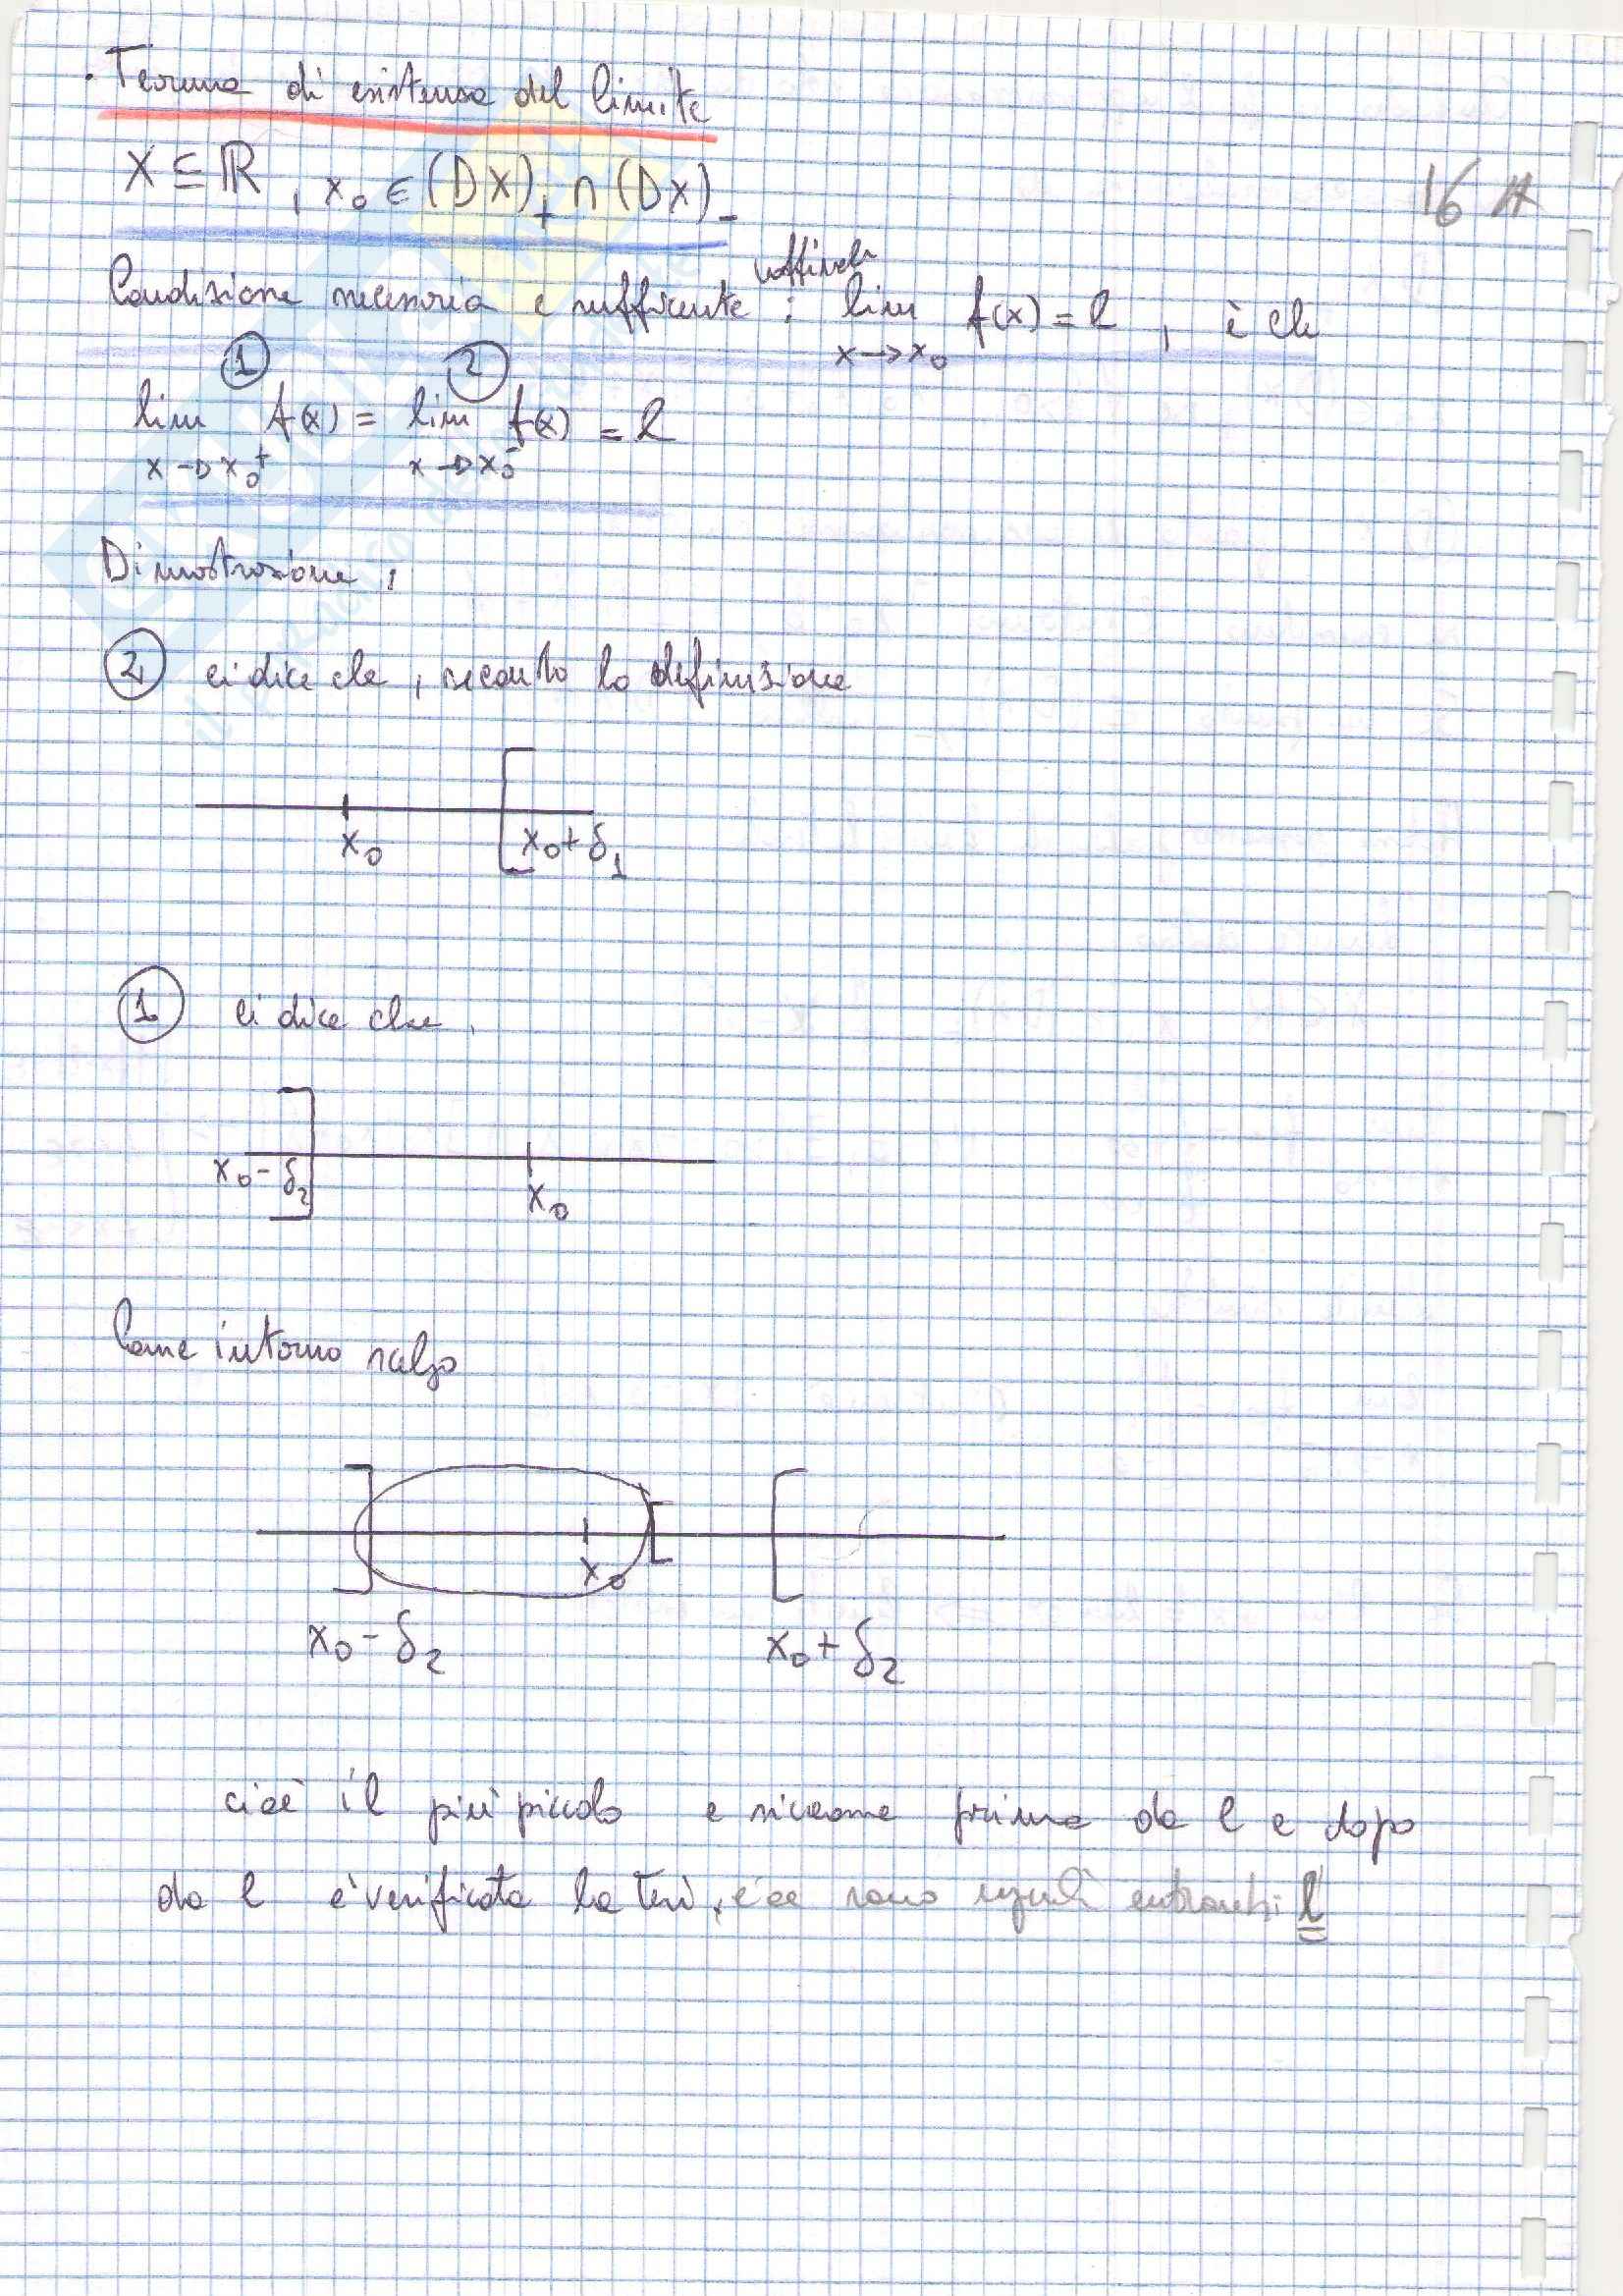 · Teorema di esistenza del limite
X ⊆ ℝ , x₀ ∈ (DX)₊ ∩ (DX)₋
16 A
affinché
Condizione necessaria e sufficiente : lim f(x) = l , è che
x → x₀
① ②
lim f(x) = lim f(x) = l
x → x₀⁺ x → x₀⁻
Dimostrazione :
② ci dice che , secondo la definizione
x₀ x₀ + δ₁
① ci dice che ,
x₀ - δ₂ x₀
Come intorno scelgo
x₀
x₀ - δ₂ x₀ + δ₂
cioè il più piccolo e siccome prima da l e dopo
da l è verificata la tesi, cioè sono uguali entrambi l